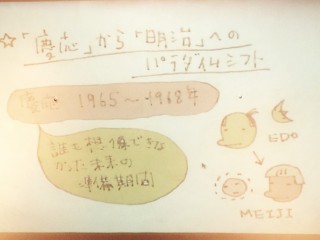 ☆「慶応」から「明治」への
パラダイムシフト
慶応 1965〜1968年
誰も想像できな
かった未来の
準備期間
EDO
MEIJI